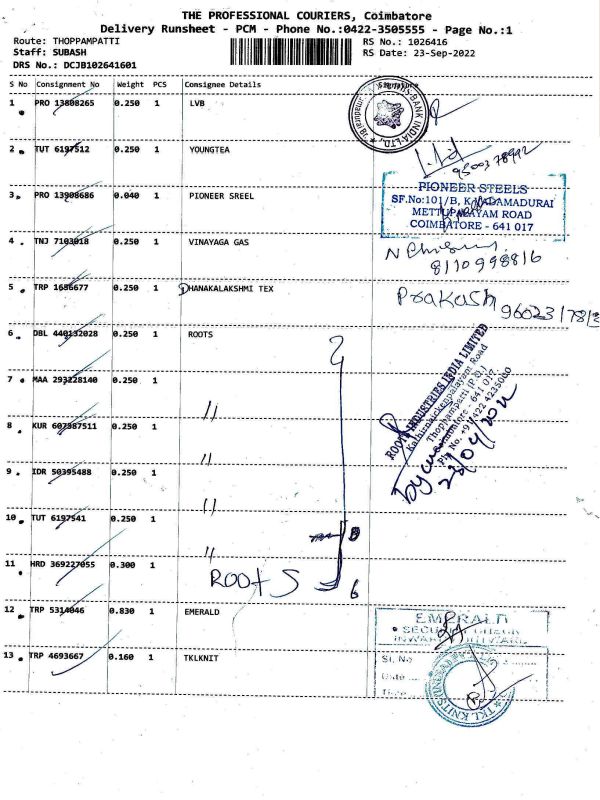 THE PROFESSIONAL COURIERS, Coimbatore
Delivery Runsheet - PCM - Phone No.:0422-3505555 - Page No.:1
Route: THOPPAMPATTI
RS No.: 1026416
Staff: SUBASH
RS Date: 23-Sep-2022
DRS No.: DCJB102641601
S No Consignment No Weight PCS Consignee Details
1 PRO 13808265 0.250 1 LVB
2 TUT 6197512 0.250 1 YOUNGTEA
9500378992
3 PRO 13908686 0.040 1 PIONEER SREEL
PIONEER STEELS
SF.No:101/B, K.VADAMADURAI
METTUPALAYAM ROAD
COIMBATORE - 641 017
4 TNJ 7103018 0.250 1 VINAYAGA GAS
8110998816
5 TRP 1686677 0.250 1 DHANAKALAKSHMI TEX
Prakash
6 DBL 440132028 0.250 1 ROOTS
7 MAA 293228140 0.250 1
8 KUR 607887511 0.250 1 "
9 IDR 50395488 0.250 1 "
10 TUT 6197541 0.250 1 "
11 HRD 369227055 0.300 1 "
ROOTS 6
ROOTS INDUSTRIES INDIA LIMITED
Thoppampatti (P.O.)
Coimbatore - 641 017
12 TRP 5314046 0.830 1 EMERALD
EMERALD
13 TRP 4693667 0.160 1 TKLKNIT
Sl. No
Date
Time
TKL KNITS